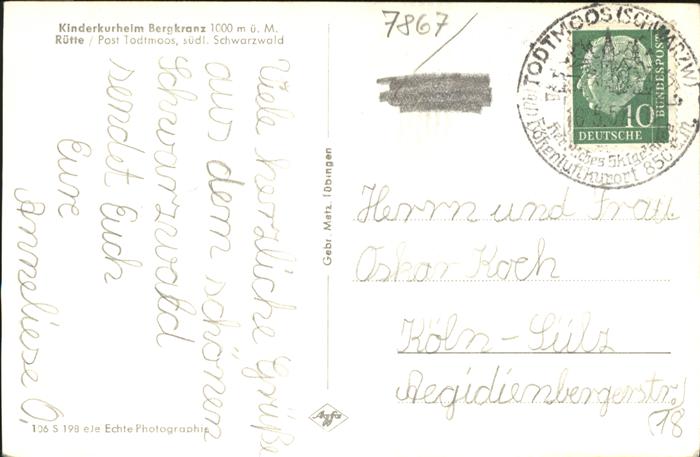 Kinderkurheim Bergkranz 1000 m ü. M.
Rütte / Post Todtmoos, südl. Schwarzwald
Viele herzliche Grüße
aus dem schönen
Schwarzwald
sendet Euch
Eure
Anneliese O.
106 S 198 eJe Echte Photographie
Gebr. Metz, Tübingen
Agfa
7867/
TODTMOOS (SCHWARZW)
Höhenluftkurort 850
DEUTSCHE
BUNDESPOST
10
Herrn und Frau
Oskar Koch
Köln-Sülz
Aegidienbergerstr.
18